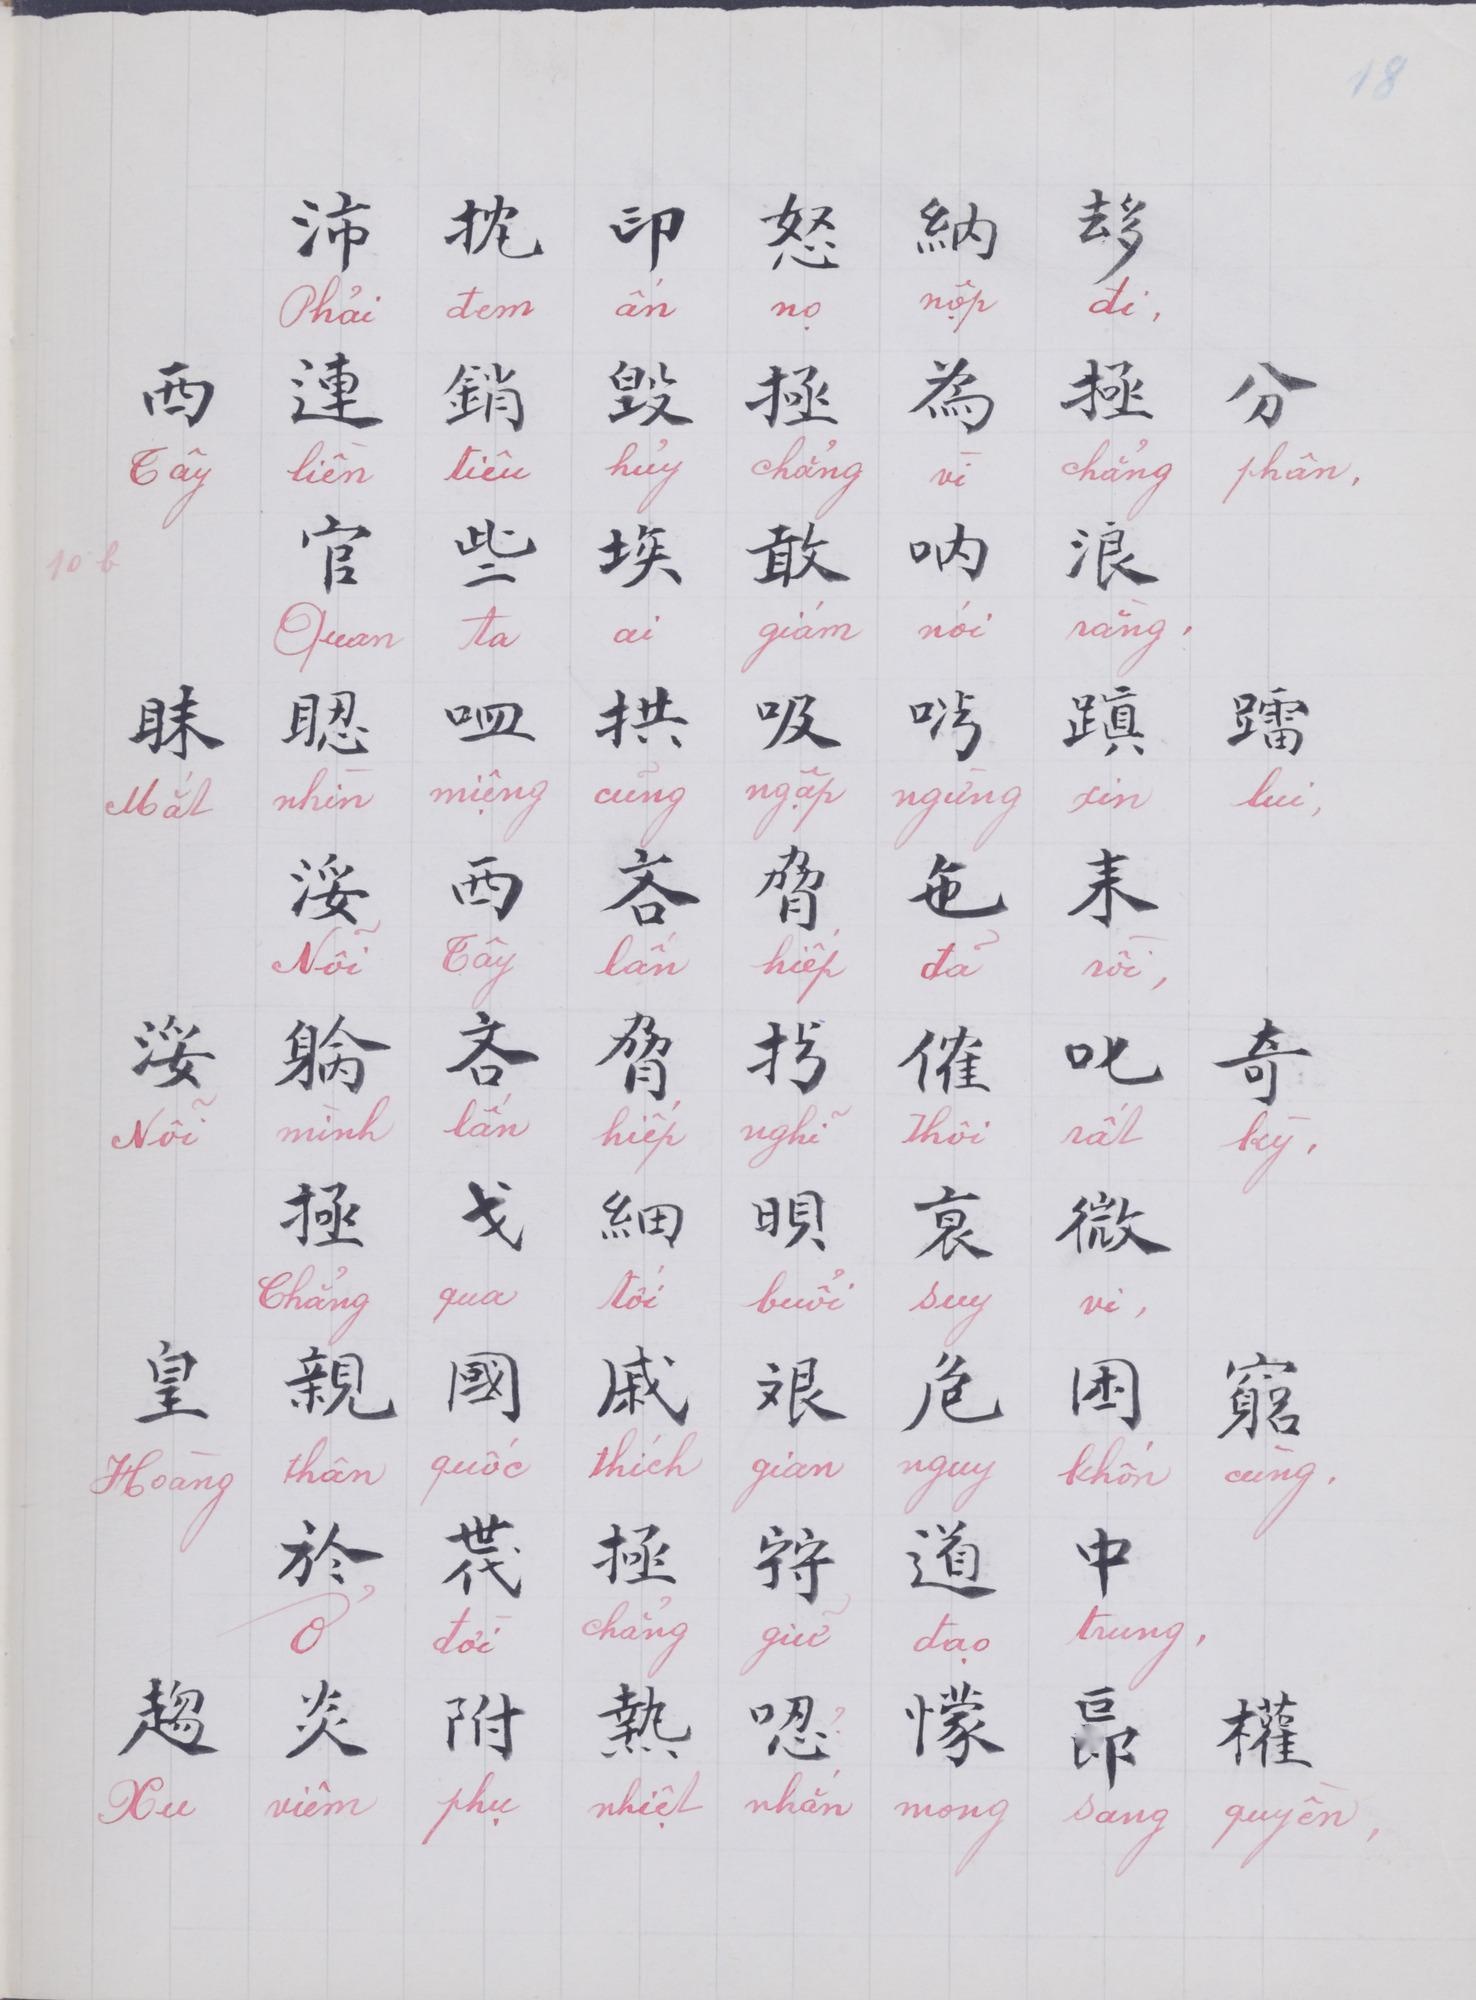 18
沛 抌 印 怒 納 𠫾
Phải đem ấn nọ nộp đi,
西 連 銷 毀 極 為 極 分
Tây liền tiêu hủy chẳng vì chẳng phân.
官 些 埃 敢 吶 浪
Quan ta ai giám nói rằng,
10 b
眜 𦖑 𠰘 拱 吸 㖇 蹎 蹹
Mắt nhìn miệng cũng ngập ngừng xin lui,
浽 西 吝 脅 㐌 耒
Nỗi Tây lấn hiếp đả rồi,
浽 躺 吝 脅 扲 催 叱 奇
Nỗi mình lấn hiếp nghĩ thôi rất kỳ,
極 戈 細 𣇜 衰 微
Chẳng qua tới buổi suy vi,
皇 親 國 戚 艱 危 困 窮
Hoàng thân quốc thích gian nguy khốn cùng.
於 𠁀 極 𡨹 道 中
Ở đời chẳng giữ đạo trung,
趨 炎 附 熱 㖼 懞 𣌆 權
Xu viêm phụ nhiệt nhắn ? mong sang quyền,